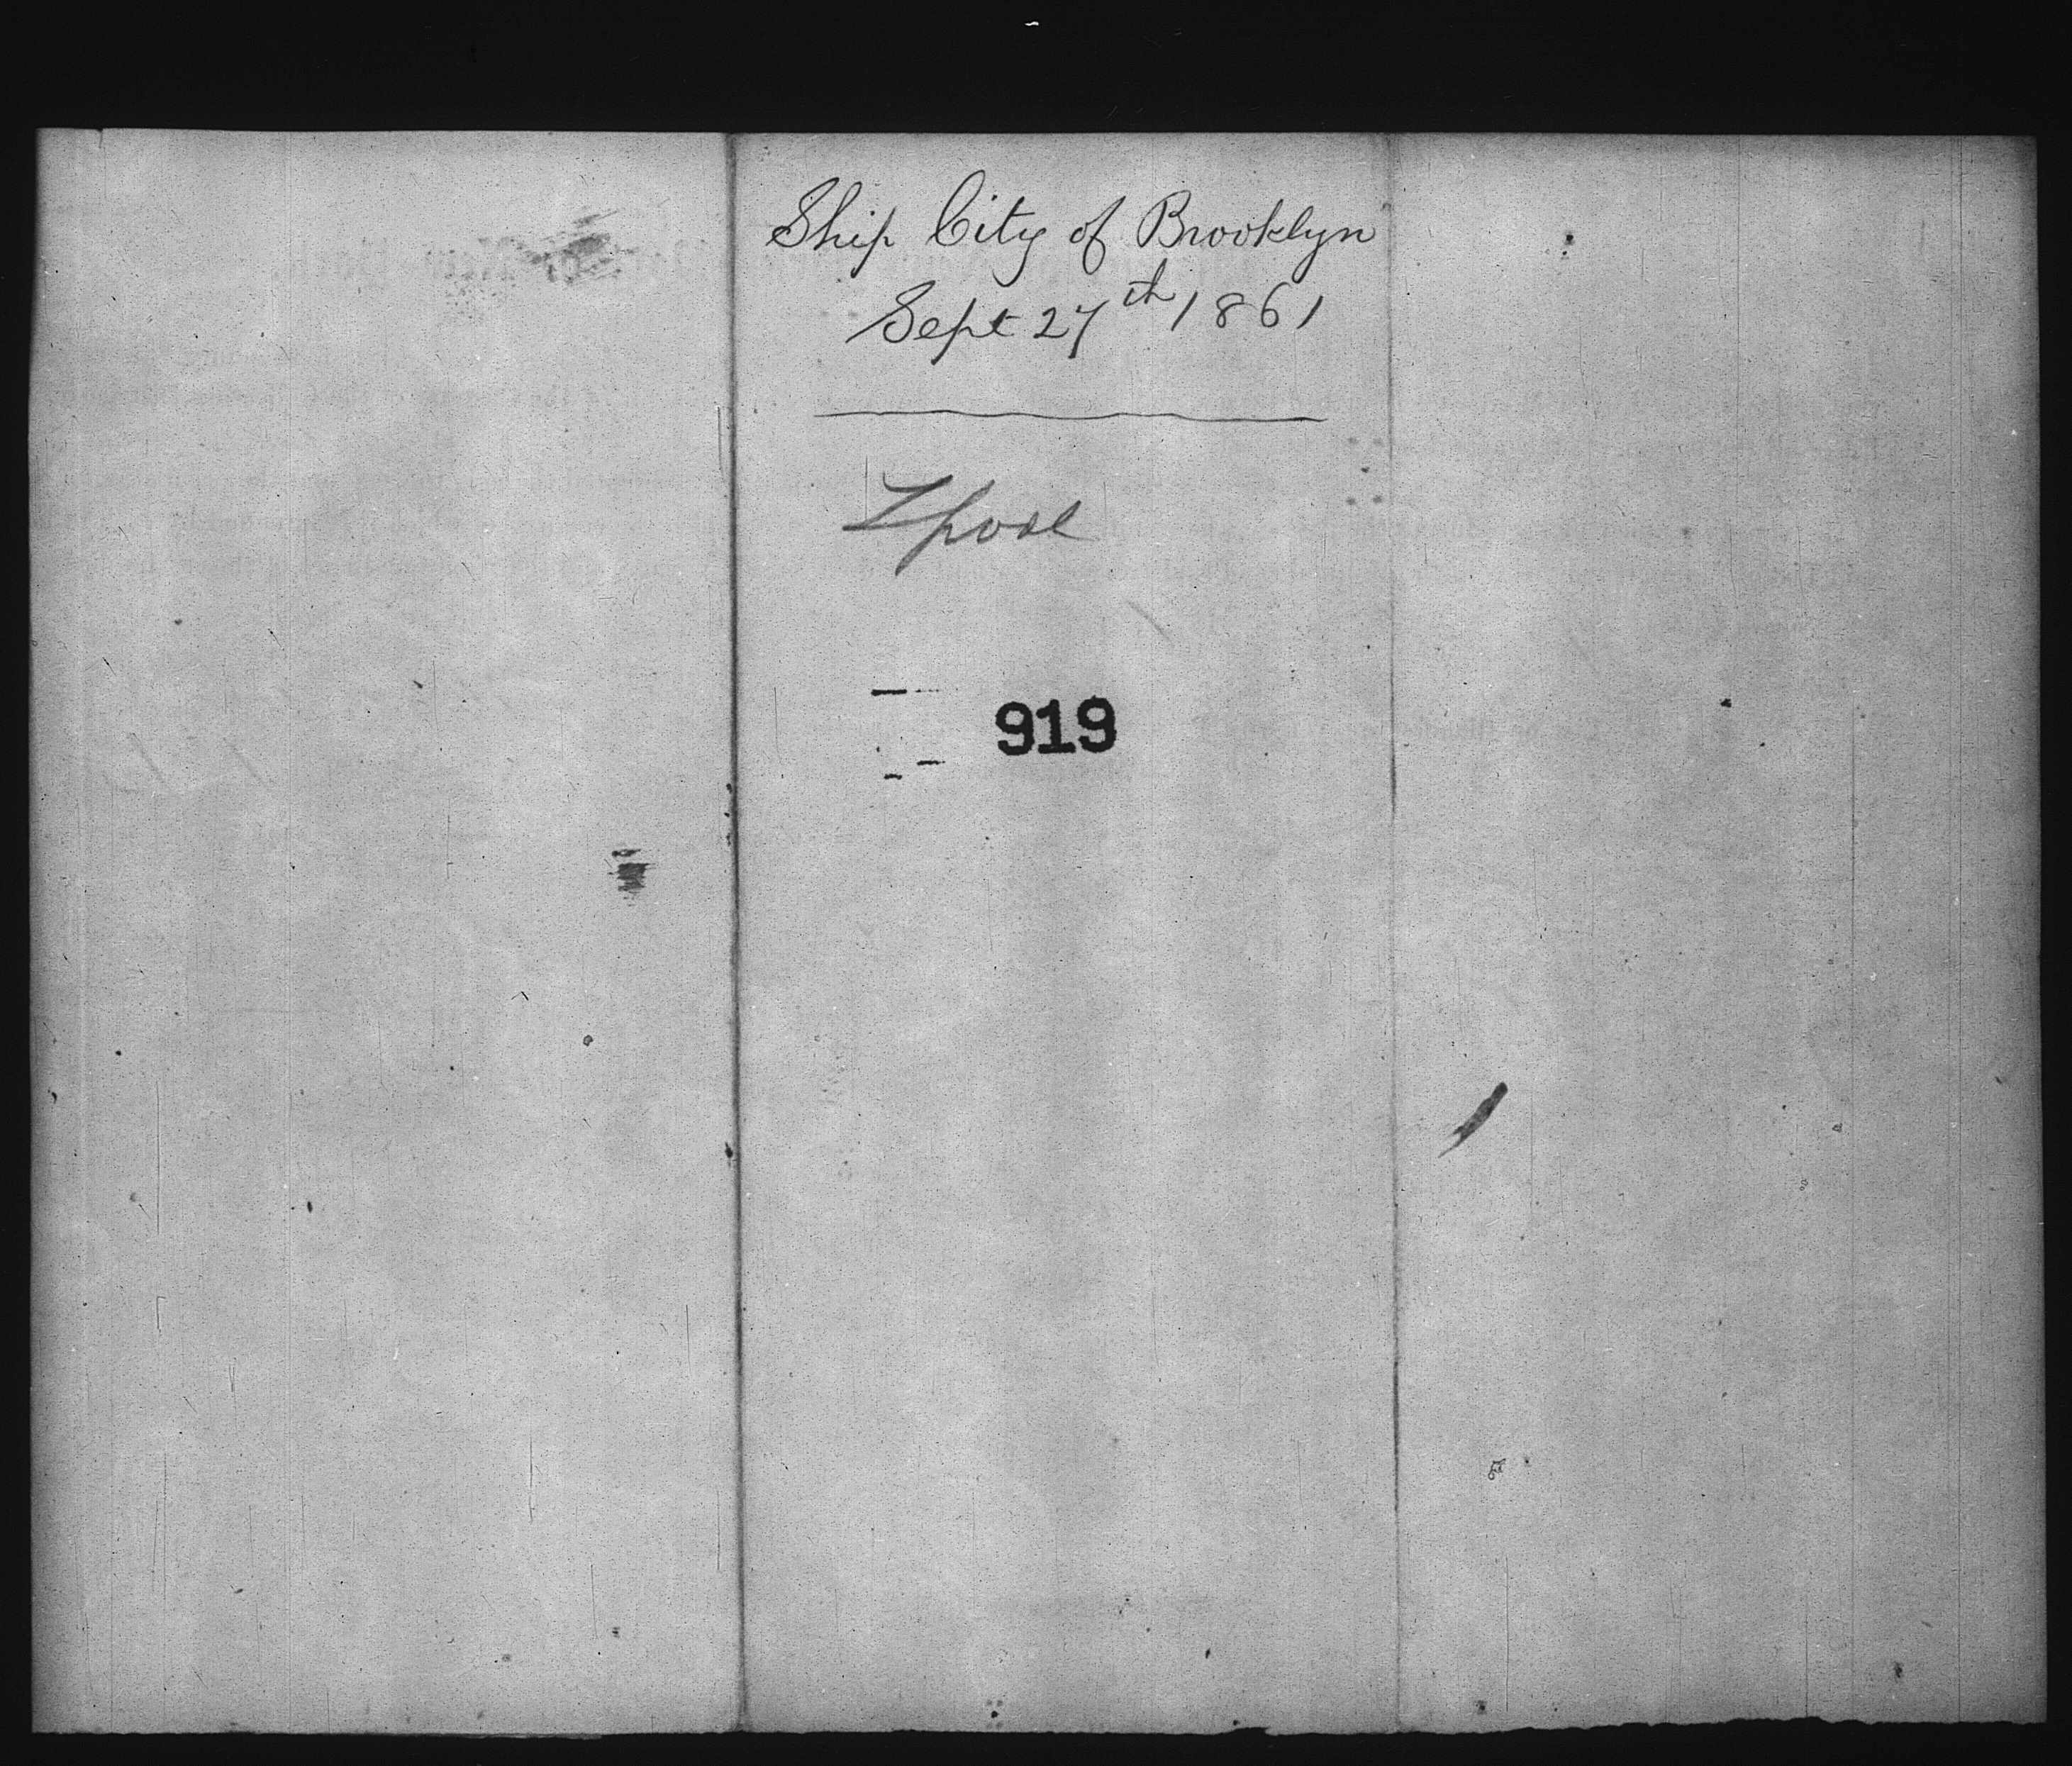 Ship City of Brooklyn
Sept 27th 1861
Lpool
919